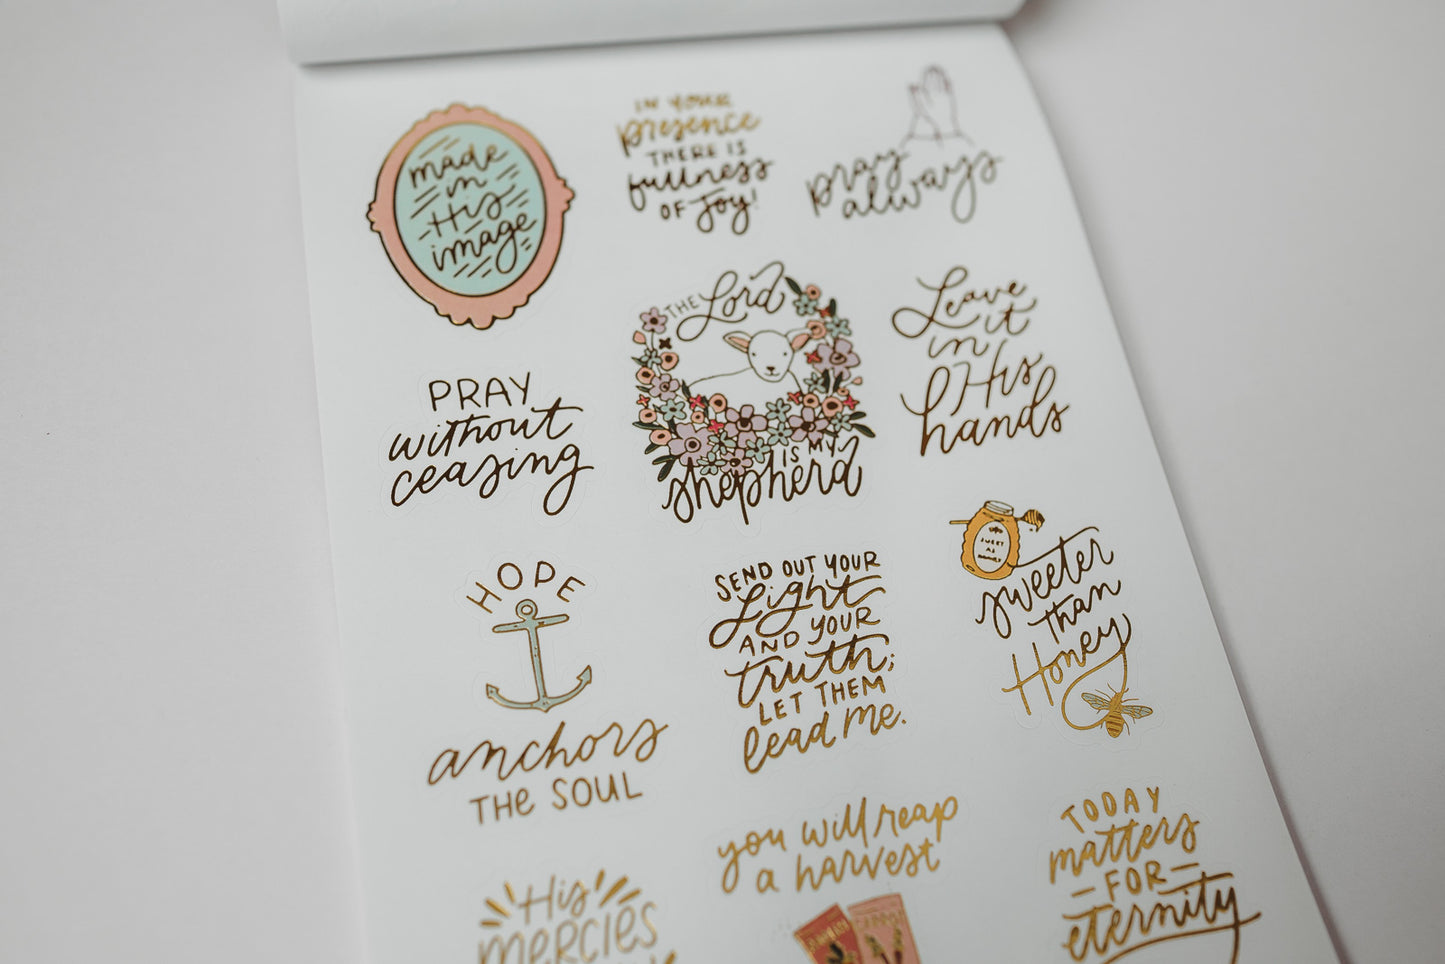 made
in
His
image
IN YOUR
presence
THERE IS
fullness
OF Joy!
pray
always
THE Lord
IS MY
shepherd
Leave
it
in
His
hands
PRAY
without
ceasing
HOPE
anchors
THE SOUL
SEND OUT YOUR
Light
AND YOUR
truth;
LET THEM
lead me.
SWEET
AS
HONEY
sweeter
than
Honey
His
MERCIES
you will reap
a harvest
TODAY
matters
FOR
eternity